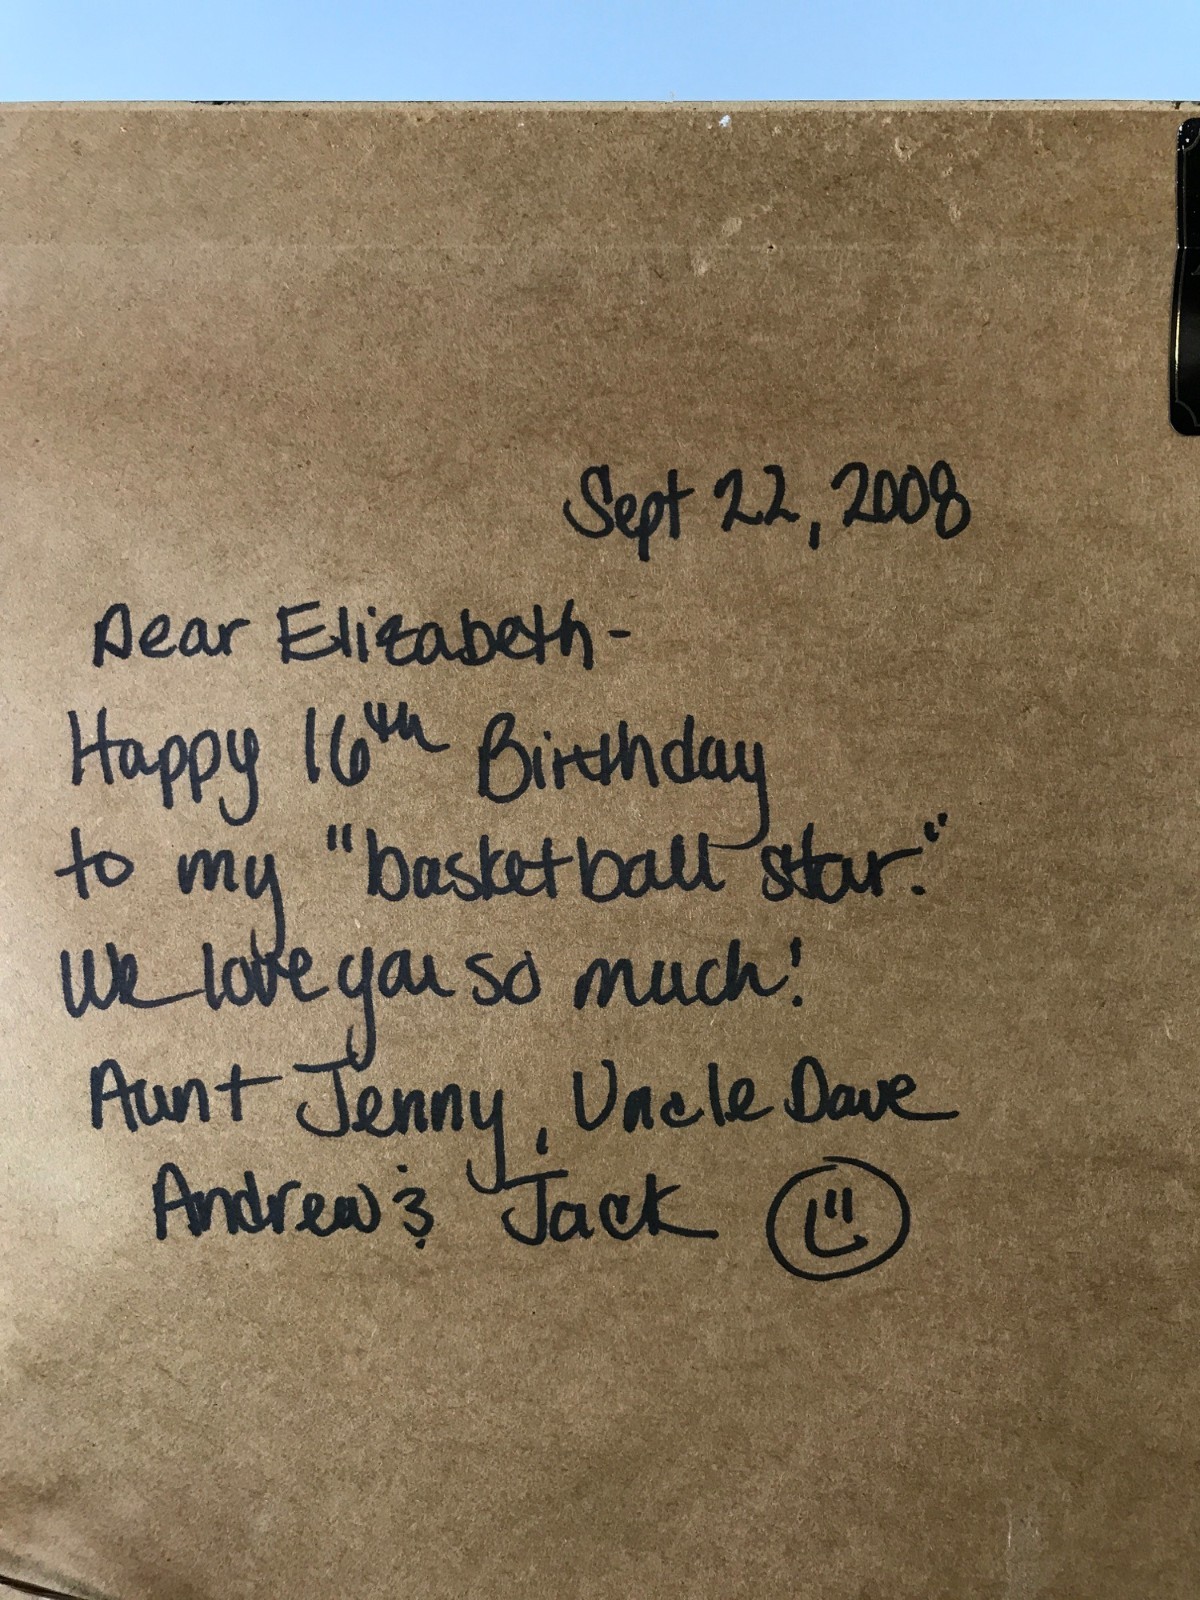 Sept 22, 2008
Dear Elizabeth-
Happy 16th Birthday
to my "basketball star."
We love you so much!
Aunt Jenny, Uncle Dave
Andrew & Jack